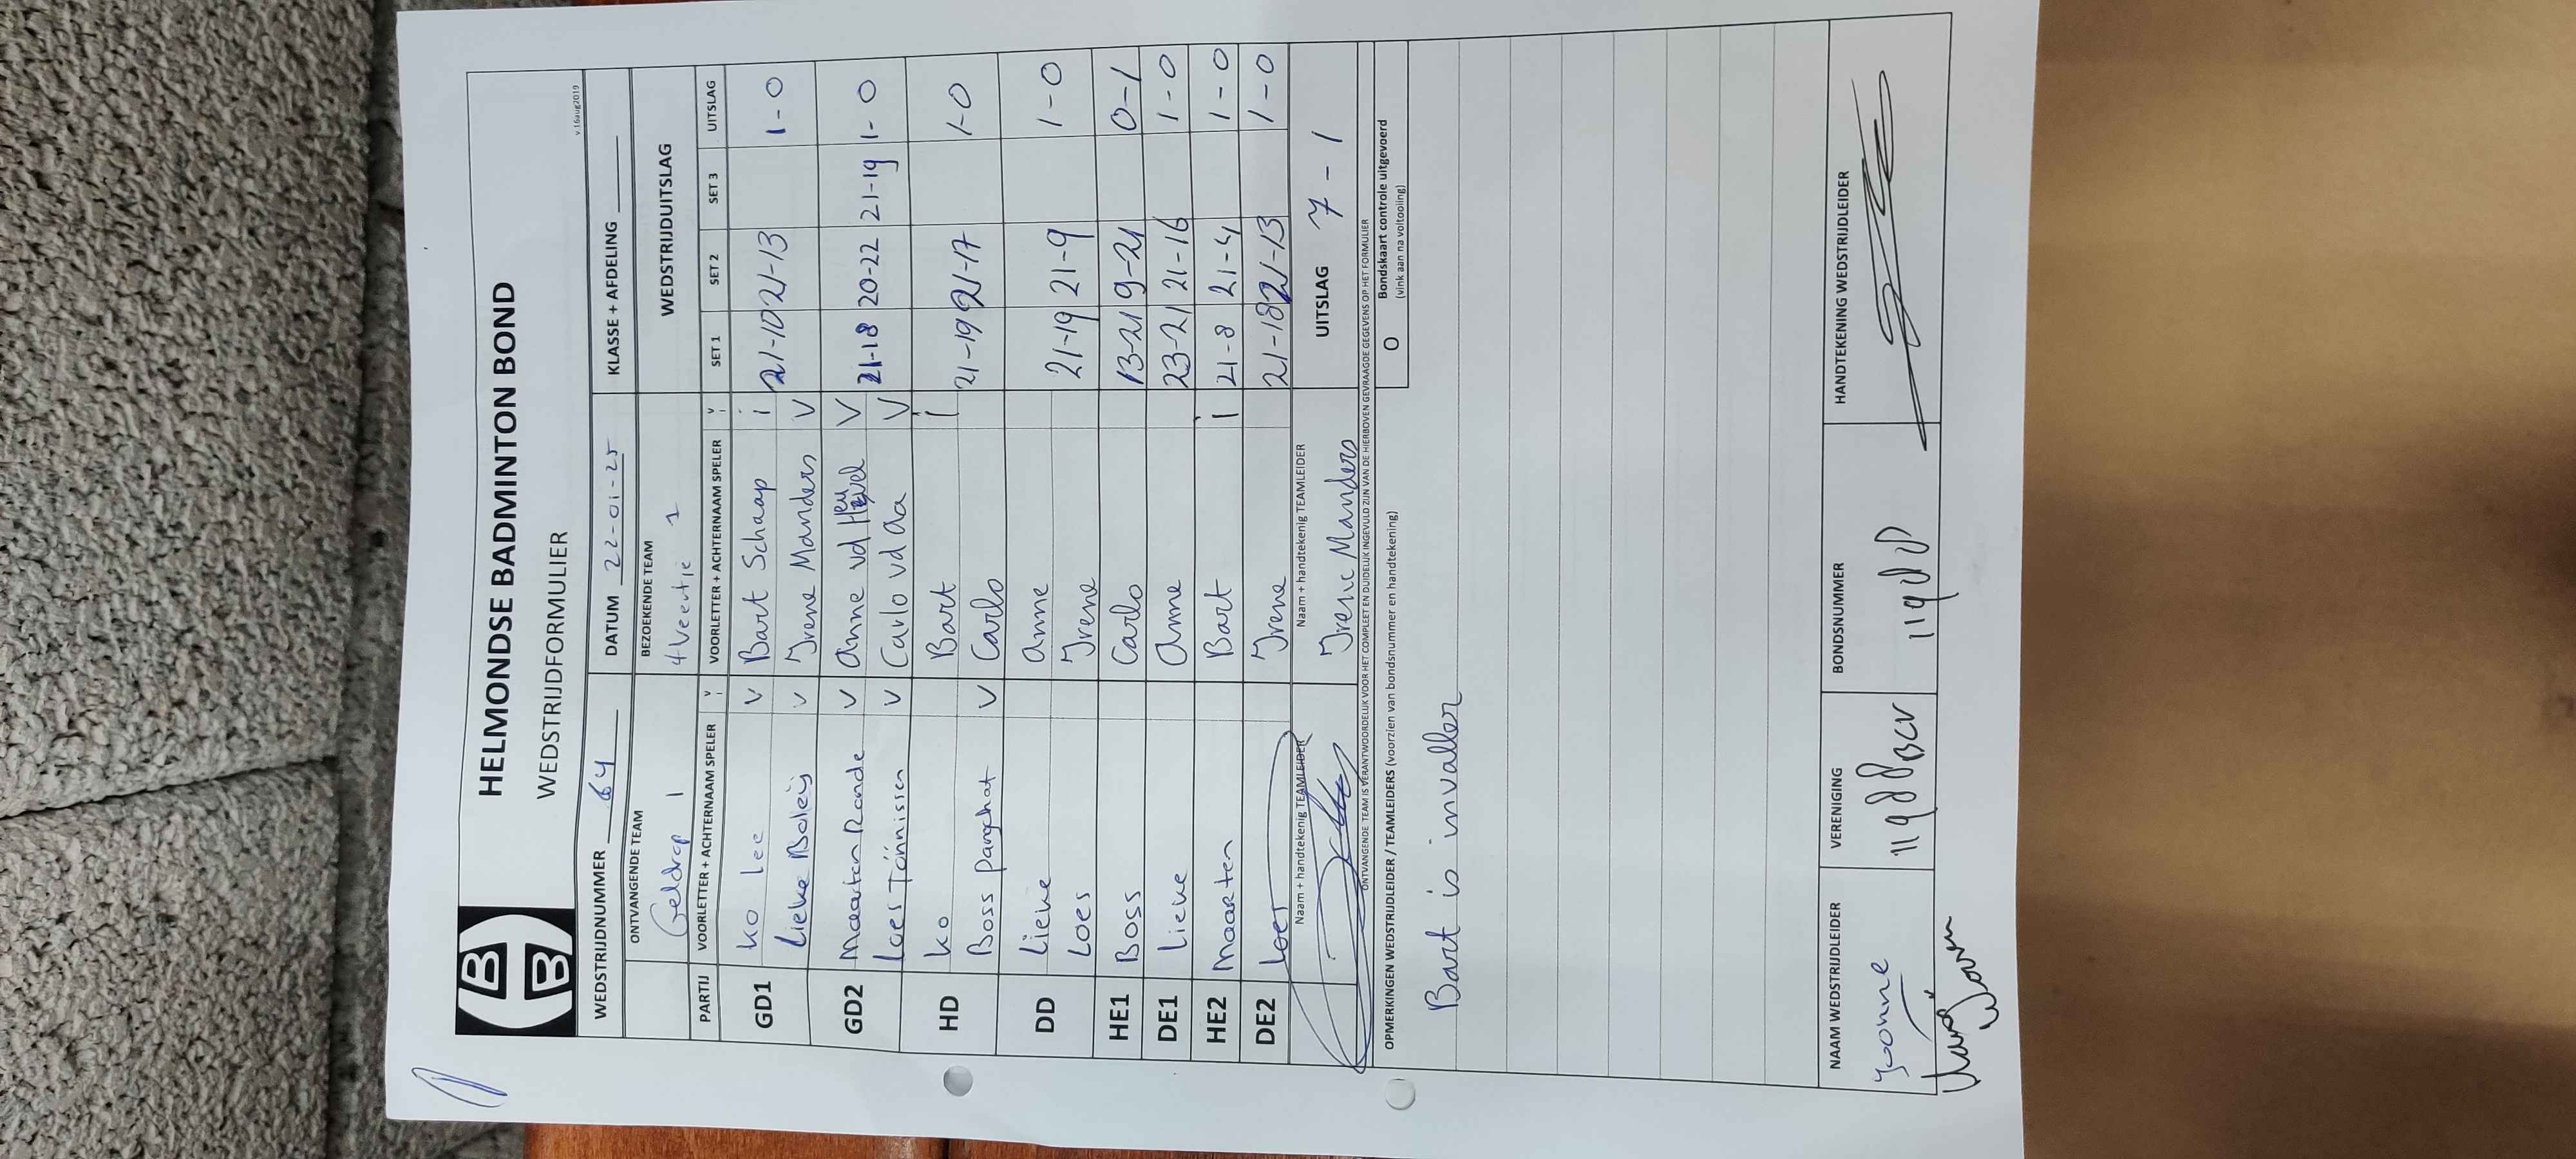 HELMONDSE BADMINTON BOND
WEDSTRIJDFORMULIER
v.16aug2019
WEDSTRIJDNUMMER 64 DATUM 22-01-25 KLASSE + AFDELING
ONTVANGENDE TEAM BEZOEKENDE TEAM WEDSTRIJDUITSLAG
Geldrop 1 4Veertie 1
PARTIJ VOORLETTER + ACHTERNAAM SPELER V/I VOORLETTER + ACHTERNAAM SPELER V/I SET 1 SET 2 SET 3 UITSLAG
GD1 Ko Lee V Bart Schaap i 21-10 21-13 1-0
Lieke Boleij V Irene Manders V
GD2 Maarten Rende V Anne vd Heuvel V 21-18 20-22 21-19 1-0
Loes Tönnissen V Carlo vd Aa V
HD Ko Bart i 21-19 21-17 1-0
Boss Pangchat V Carlo
DD Lieke Anne 21-19 21-9 1-0
Loes Irene
HE1 Boss Carlo 13-21 9-21 0-1
DE1 Lieke Anne 23-21 21-16 1-0
HE2 Maarten Bart i 21-8 21-4 1-0
DE2 Loes Irene 21-18 21-13 1-0
Naam + handtekenig TEAMLEIDER Naam + handtekenig TEAMLEIDER UITSLAG 7-1
Irene Manders
ONTVANGENDE TEAM IS VERANTWOORDELIJK VOOR HET COMPLEET EN DUIDELIJK INGEVULD ZIJN VAN DE HIERBOVEN GEVRAAGDE GEGEVENS OP HET FORMULIER
OPMERKINGEN WEDSTRIJDLEIDER / TEAMLEIDERS (voorzien van bondsnummer en handtekening) O Bondskaart controle uitgevoerd
(vink aan na voltooiing)
Bart is invaller
NAAM WEDSTRIJDLEIDER VERENIGING BONDSNUMMER HANDTEKENING WEDSTRIJDLEIDER
Yvonne BCV